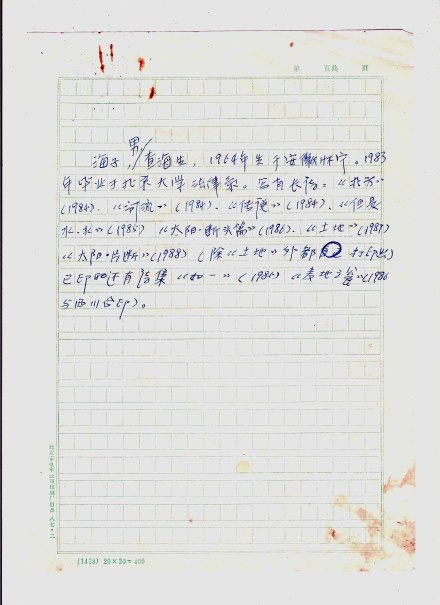 第 页共 页
男
海子，查海生，1964年生于安徽怀宁。1983
年毕业于北京大学法律系。写有长诗：《北方》
(1984)、《河流》(1984)、《传说》(1984)、《但是
水、水》(1985) 《太阳·断头篇》(1986)、《土地》(1987)
《太阳·片断》(1988) (除《土地》外都 打印出)
已印的还有诗集《如一》(1984) 《麦地之瓮》(1986
与西川合印)。
(1418) 20×20=400